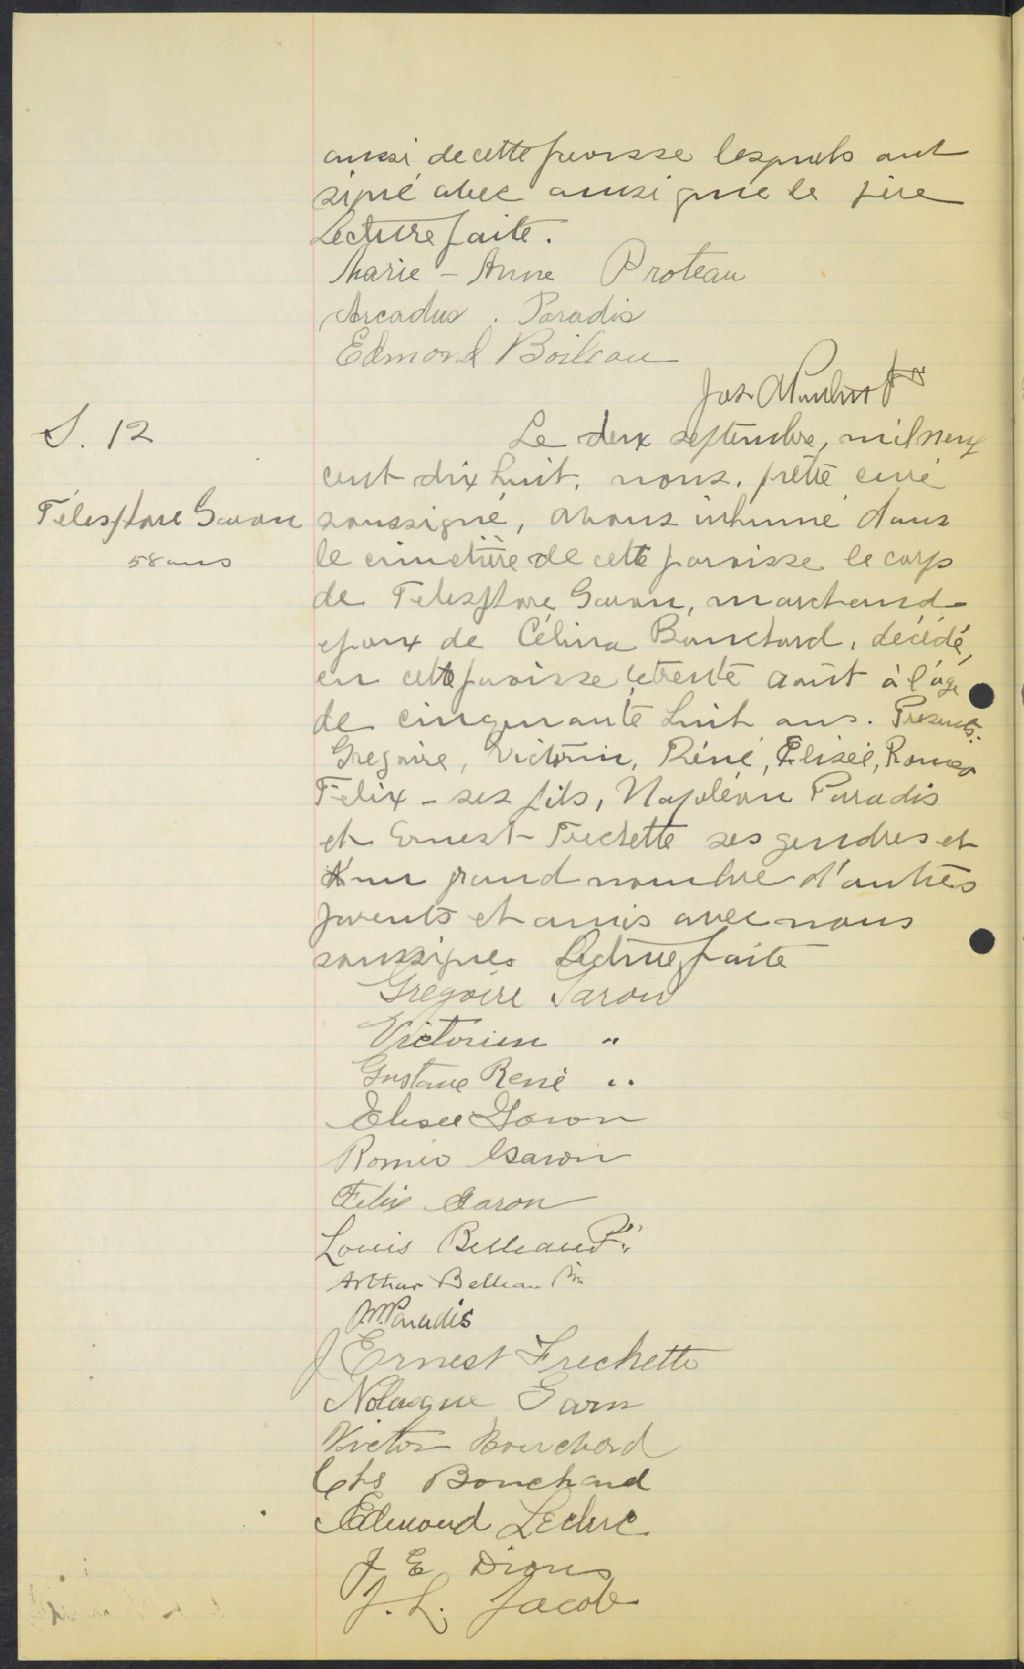 aussi de cette paroisse lesquels ont
signé avec ainsi que le père
Lecture faite.
Marie - Anne Proteau
Arcadus. Paradis
Edmond Boileau
Jos. A
S. 12
Le deux septembre, mil neuf
cent dix huit, nous, prêtre curé
Télesphore Garon
58 ans
soussigné, avons inhumé dans
le cimetière de cette paroisse le corps
de Telesphore Garon, marchand
epoux de Célina Bouchard, décédé,
en cette paroisse le trente août à l'âge
de cinquante huit ans. Présents:
Gregoire, Victorin, Réné, Elisée, Romeo
Felix - ses fils, Napoléon Paradis
et Ernest Frechette ses gendres et
un grand nombre d'autres
parents et amis avec nous
soussignés Lecture faite
Grégoire Garon
Victorien "
Gustave René "
Elisée Garon
Roméo Garon
Felix Garon
Louis Belleau Ptr
Arthur Belleau
Paradis
J Ernest Frechette
Nolasque Garon
Victor Bouchard
Chs Bouchard
Edmond Leclerc
J E Dionis
J. L. Jacob